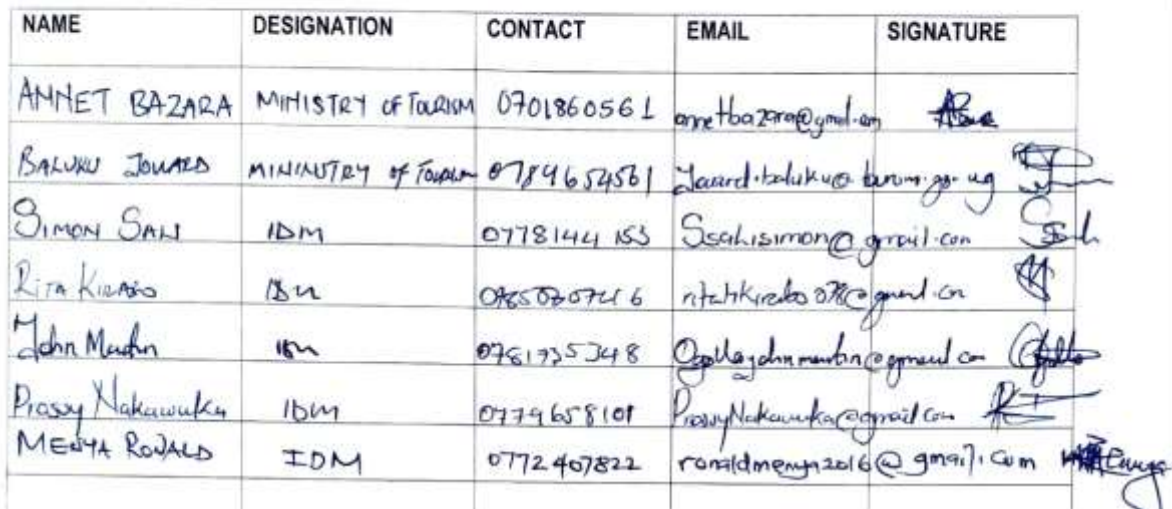 NAME DESIGNATION CONTACT EMAIL SIGNATURE
ANNET BAZARA MINISTRY OF TOURISM 0701860561 annetbazara@gmail.com
BALUKU JOWARD MININSTRY of TOURISM 0784654561
SIMON SALI IDM 0778144153 Ssalisimon@gmail.com
RITA KIRABO IDM
John Martin IDM 0781735348 Ogollajohnmartin@gmail.com
Prossy Nakawuka IDM 0779658101 ProssyNakawuka@gmail.com
MENYA RONALD IDM 0772407822 ronaldmenya2016@gmail.com